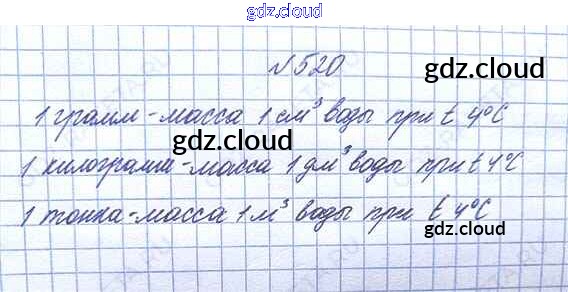 gdz.cloud
№520
gdz.cloud
1 грамм - масса 1 см³ воды при t 4°C
gdz.cloud
1 килограмм - масса 1 дм³ воды при t 4°C
1 тонна - масса 1 м³ воды при t 4°C
gdz.cloud